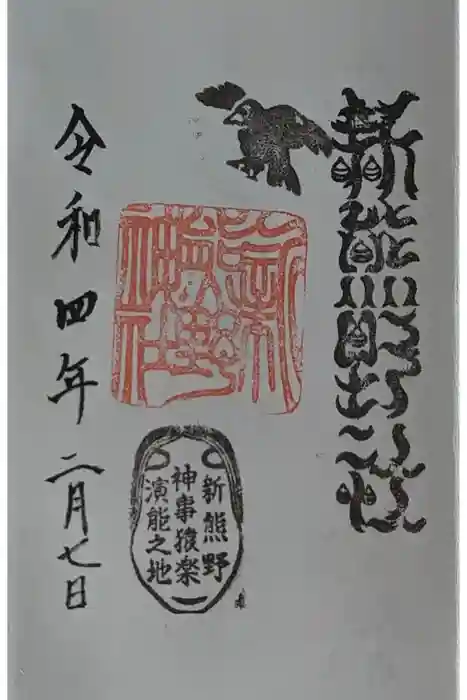 新熊野神社
新熊野
神事猿楽
演能之地
令和四年二月七日